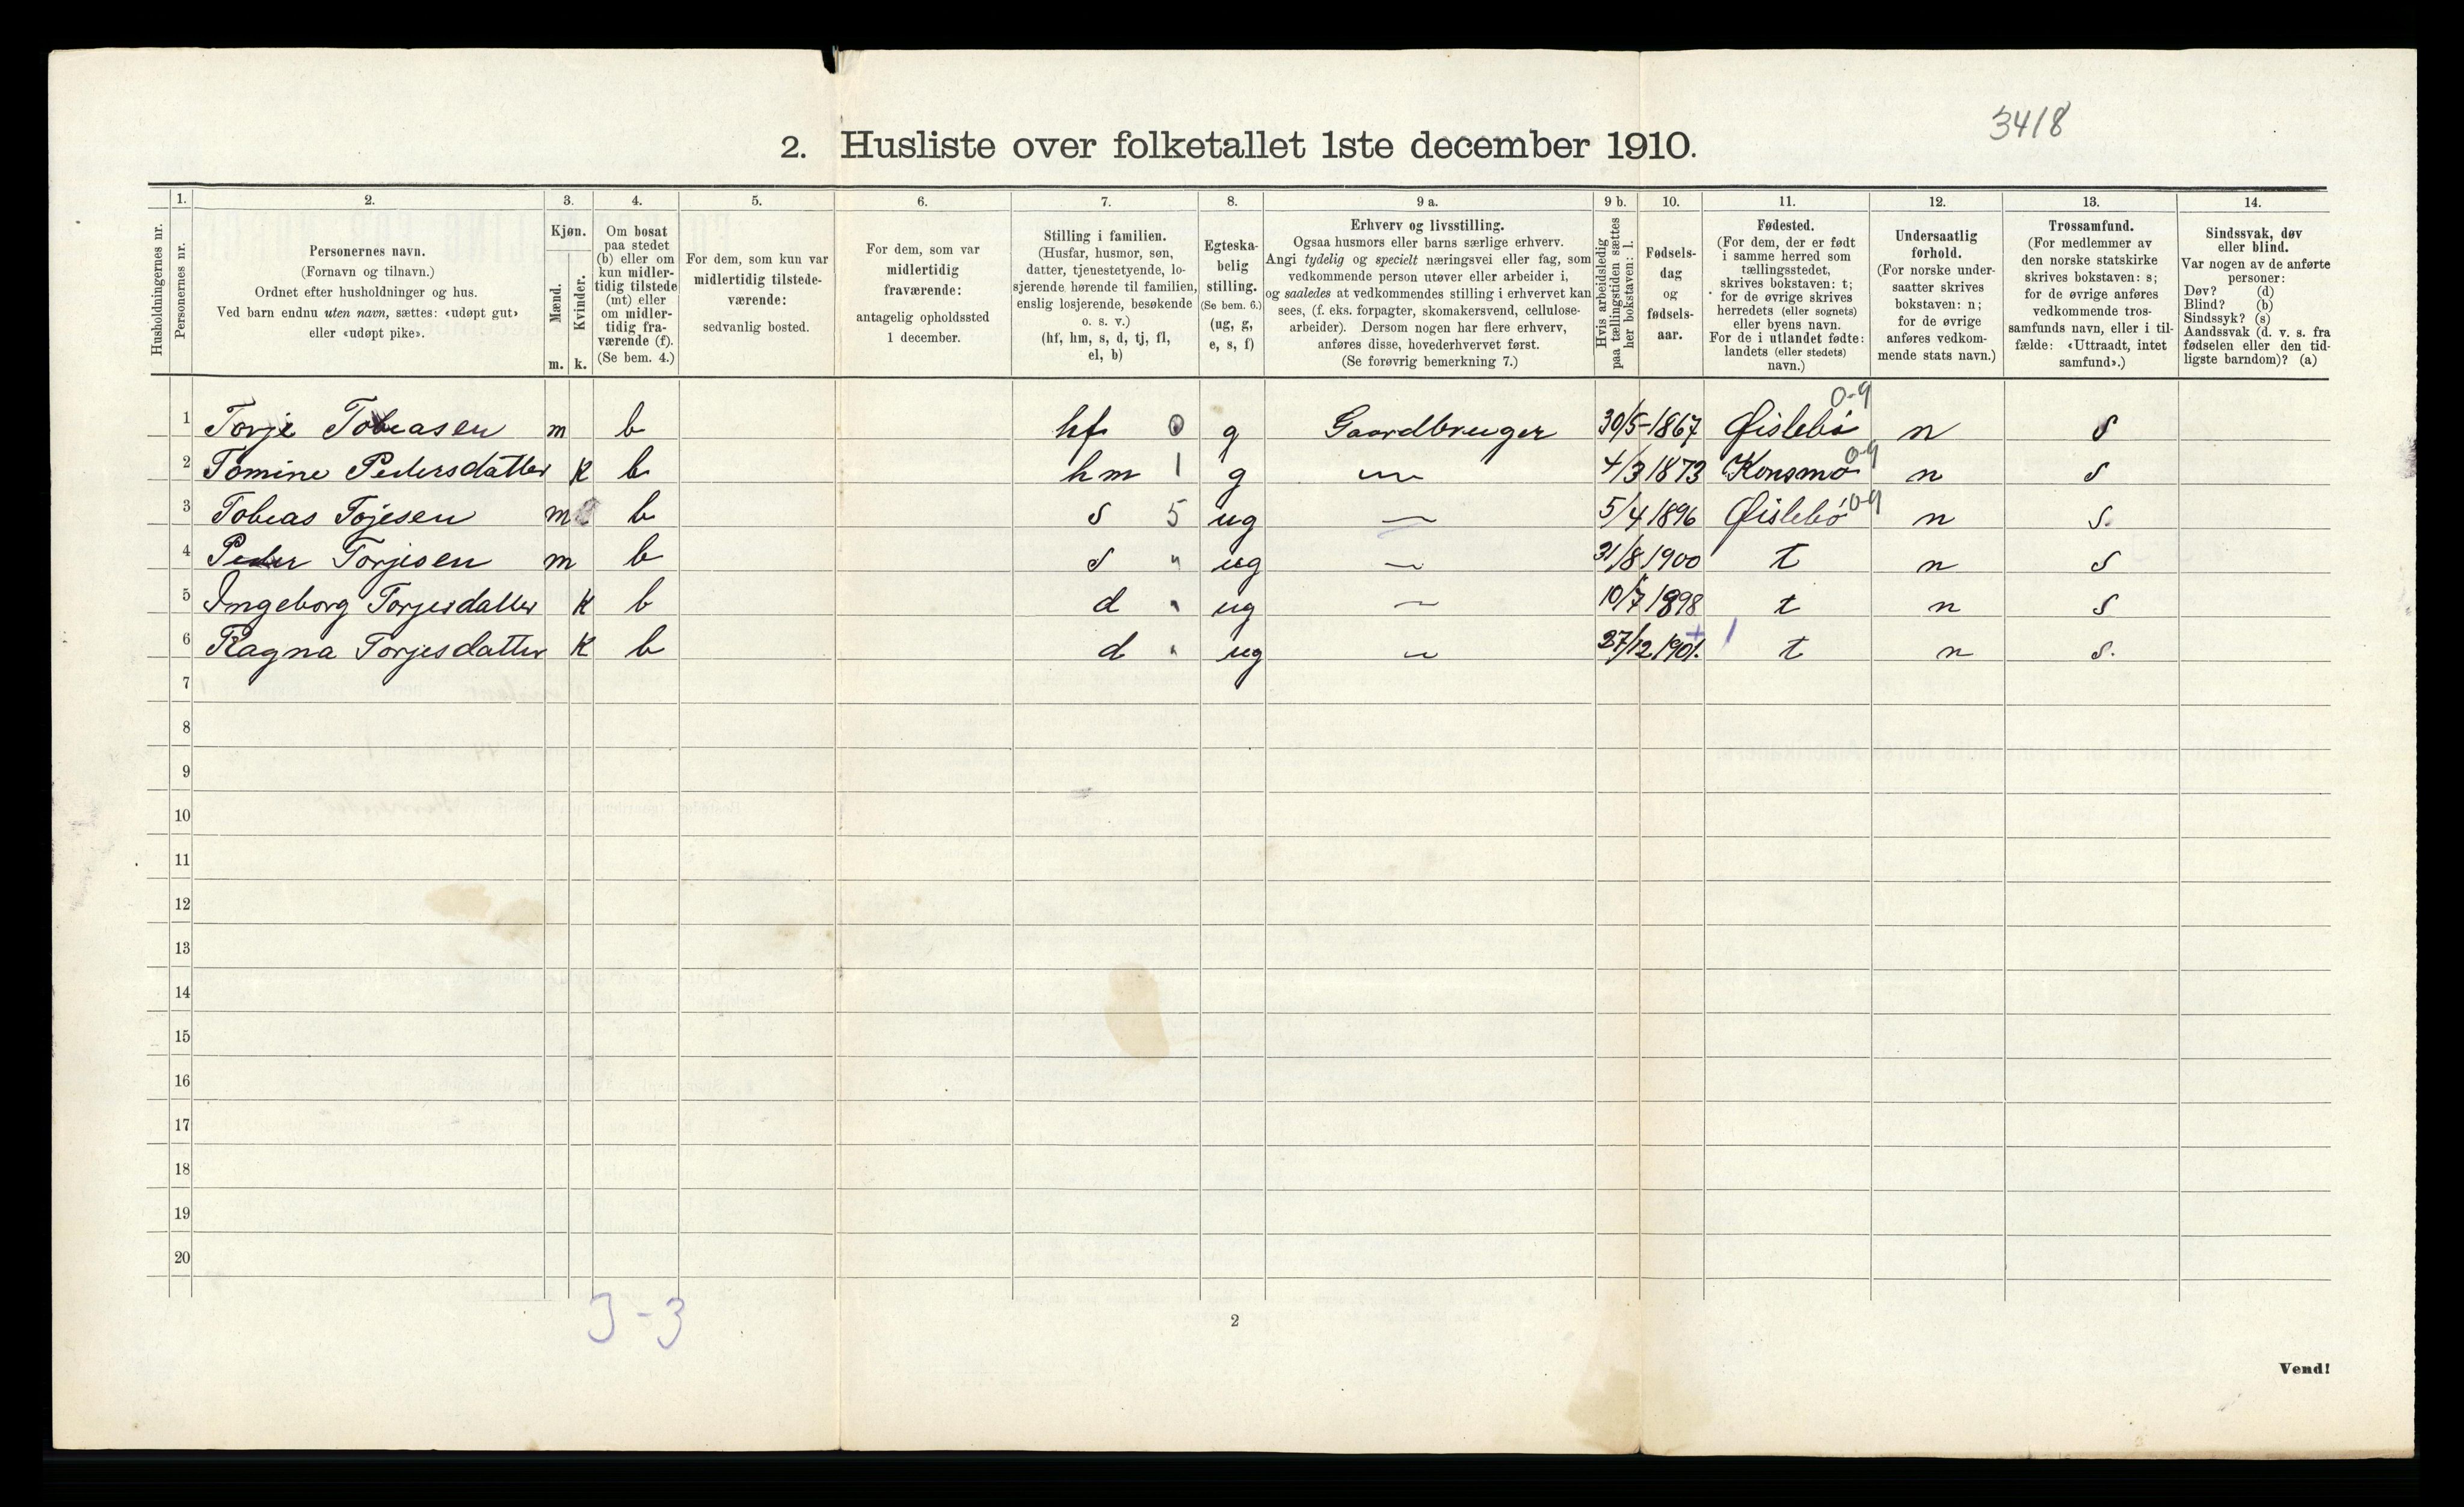 3418
2. Husliste over folketallet 1ste december 1910.
1. 2. 3. 4. 5. 6. 7. 8. 9 a. 9 b. 10. 11. 12. 13. 14.
Husholdningernes nr.
Personernes nr.
Personernes navn.
(Fornavn og tilnavn.)
Ordnet efter husholdninger og hus.
Ved barn endnu uten navn, sættes: «udøpt gut»
eller «udøpt pike».
Kjøn.
Mænd.
Kvinder.
m. k.
Om bosat
paa stedet
(b) eller om
kun midler-
tidig tilstede
(mt) eller
om midler-
tidig fra-
værende (f).
(Se bem. 4.)
For dem, som kun var
midlertidig tilstede-
værende:
sedvanlig bosted.
For dem, som var
midlertidig
fraværende:
antagelig opholdssted
1 december.
Stilling i familien.
(Husfar, husmor, søn,
datter, tjenestetyende, lo-
sjerende hørende til familien,
enslig losjerende, besøkende
o. s. v.)
(hf, hm, s, d, tj, fl,
el, b)
Egteska-
belig
stilling.
(Se bem. 6.)
(ug, g,
e, s, f)
Erhverv og livsstilling.
Ogsaa husmors eller barns særlige erhverv.
Angi tydelig og specielt næringsvei eller fag, som
vedkommende person utøver eller arbeider i,
og saaledes at vedkommendes stilling i erhvervet kan
sees, (f. eks. forpagter, skomakersvend, cellulose-
arbeider). Dersom nogen har flere erhverv,
anføres disse, hovederhvervet først.
(Se forøvrig bemerkning 7.)
Hvis arbeidsledig
paa tællingstiden sættes
her bokstaven: l.
Fødsels-
dag
og
fødsels-
aar.
Fødested.
(For dem, der er født
i samme herred som
tællingsstedet,
skrives bokstaven: t;
for de øvrige skrives
herredets (eller sognets)
eller byens navn.
For de i utlandet fødte:
landets (eller stedets)
navn.)
Undersaatlig
forhold.
(For norske under-
saatter skrives
bokstaven: n;
for de øvrige
anføres vedkom-
mende stats navn.)
Trossamfund.
(For medlemmer av
den norske statskirke
skrives bokstaven: s;
for de øvrige anføres
vedkommende tros-
samfunds navn, eller i til-
fælde: «Uttraadt, intet
samfund».)
Sindssvak, døv
eller blind.
Var nogen av de anførte
personer:
Døv? (d)
Blind? (b)
Sindssyk? (s)
Aandssvak (d. v. s. fra
fødselen eller den tid-
ligste barndom)? (a)
0-9
1 Torje Tobiasen m b hf 0 g Gaardbruger 30/5-1867 Øislebø n s
2 Tomine Pedersdatter k b hm 1 g 4/3 1873 Konsmo 0-9 n s
3 Tobias Tojesen m b s 5 ug — 5/4 1896 Øislebø 0-9 n s.
4 Peder Torjesen m b s " ug — 31/8 1900 t n s
5 Ingeborg Torjesdatter k b d " ug — 10/7 1898 t n s
6 Ragna Torjesdatter k b d " ug — 27/12 1901. t n s.
7
8
9
10
11
12
13
14
15
16
17
18
19
20
3-3
2
Vend!